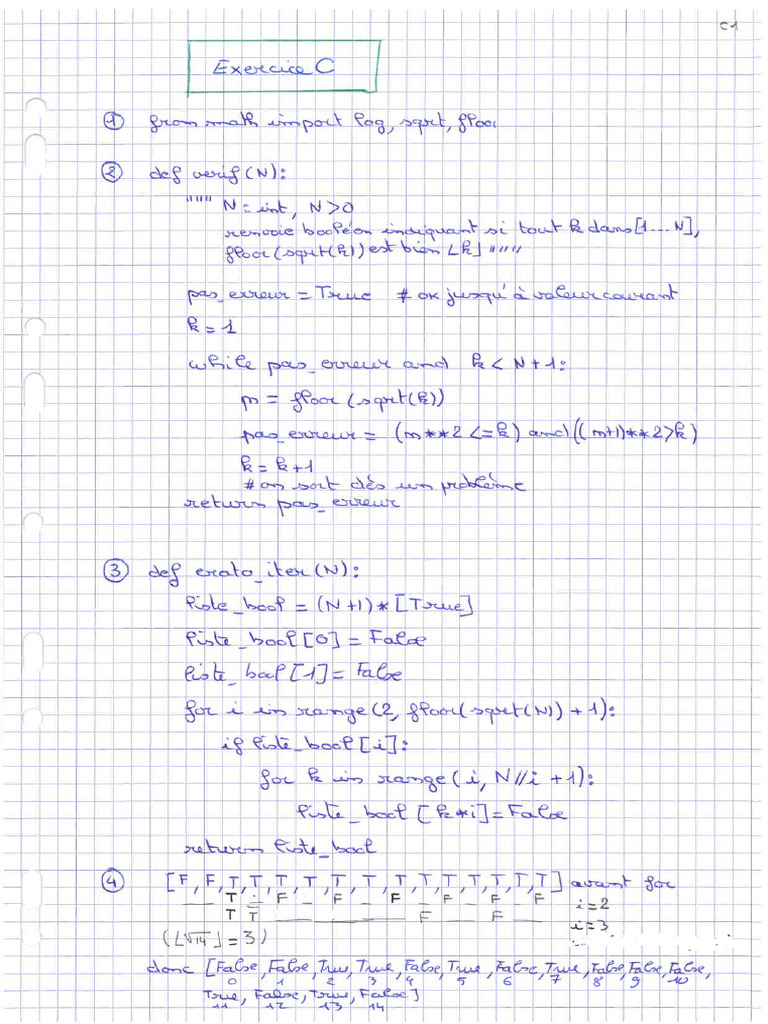 C1
Exercice C
① from math import log, sqrt, floor
② def verif(N):
""" N = int, N>0
renvoie booléen indiquant si tout k dans [1...N],
floor(sqrt(k)) est bien ⌊k⌋ """
pas_erreur = True # ok jusqu'à valeur courant
k = 1
while pas_erreur and k < N+1:
m = floor(sqrt(k))
pas_erreur = (m**2 <= k) and ((m+1)**2 > k)
k = k+1
# on sort dès un problème
return pas_erreur
③ def erato_iter(N):
liste_bool = (N+1)*[True]
liste_bool[0] = False
liste_bool[1] = False
for i in range(2, floor(sqrt(N)) + 1):
if liste_bool[i]:
for k in range(i, N//i + 1):
liste_bool[k*i] = False
return liste_bool
④ [F, F, T, T, T, T, T, T, T, T, T, T, T, T, T] avant for
T F F F F F F i=2
T F F i=3
(⌊√14⌋ = 3)
donc [False, False, True, True, False, True, False, True, False, False, False,
0 1 2 3 4 5 6 7 8 9 10
True, False, True, False]
11 12 13 14